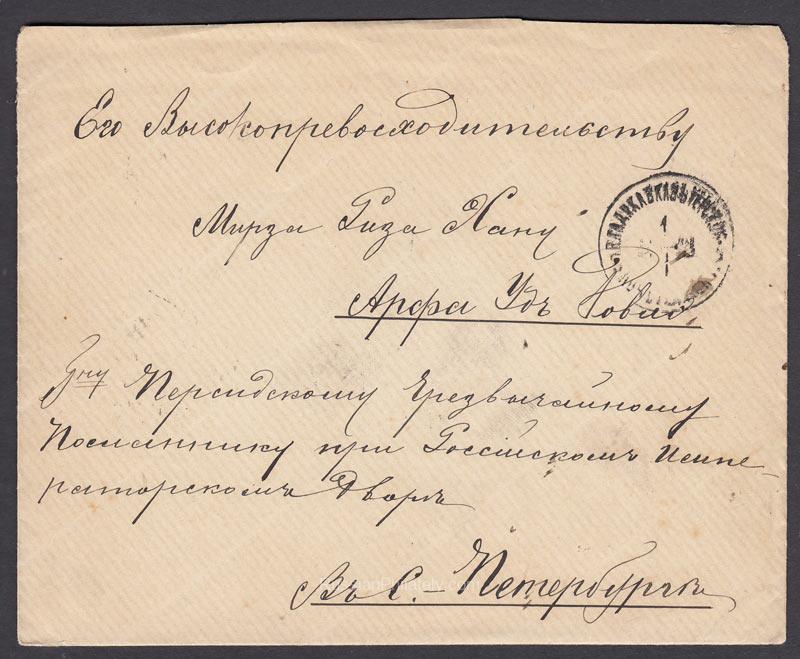 Его Высокопревосходительству
Мирза Риза Хану
Арфа Удъ Довлэ
Гну Персидскому Чрезвычайному
Посланнику при Россійскомъ Импе-
раторскомъ Дворѣ
Въ С.-Петербургѣ
ВЛАДИКАВКАЗЪ
1